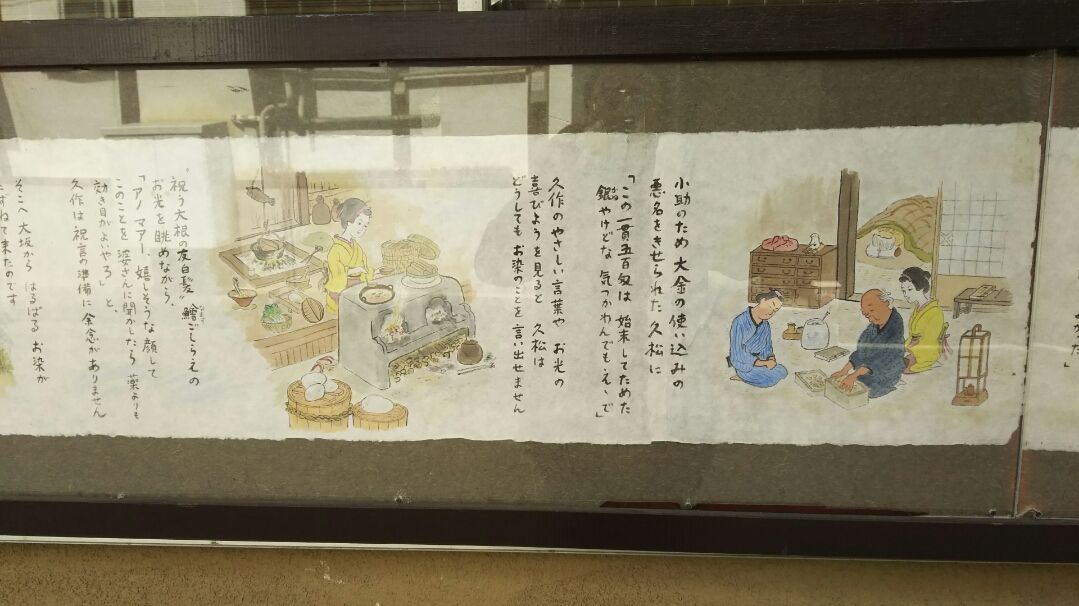 小助のため 大金の使い込みの
悪名をきせられた 久松に
「この一貫五百匁は 始末してためた
銀やけどな 気つかわんでも、え、で」
久作のやさしい言葉や お光の
喜びようを見ると 久松は
どうしても お染のことを 言い出せません
"祝う大根の友白髪" 鱠ごしらえの
お光を眺めながら、
「アノ マアー、嬉しそうな顔して
このことを 婆さんに聞かしたら 薬よりも
効き目がよいやろ」 と
久作は 祝言の準備に 余念がありません
そこへ 大坂から はるばる お染が
たずねて来たのです